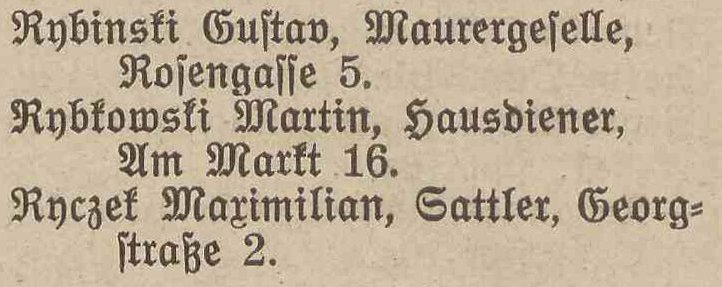 Rybinski Gustav, Maurergeselle,
Rosengasse 5.
Rybkowski Martin, Hausdiener,
Am Markt 16.
Ryczek Maximilian, Sattler, Georg-
straße 2.